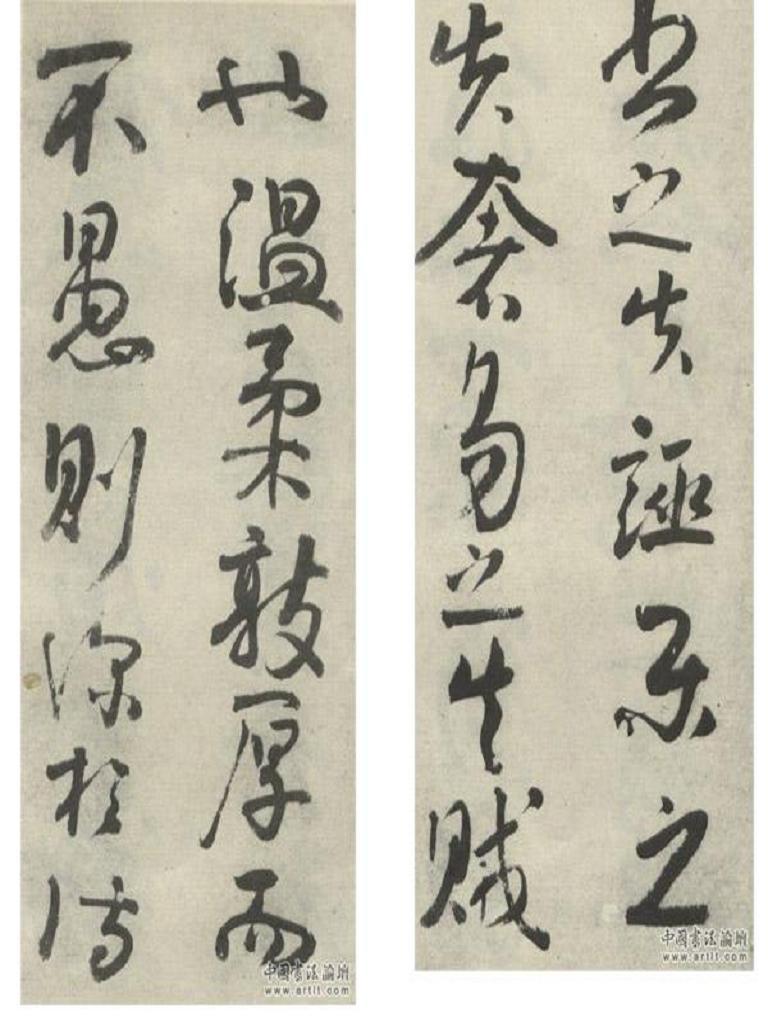 書之失誣樂之
失奢易之失賊
也温柔敦厚而
不愚則深於詩
中國書法論壇
www.artlt.com
中國書法論壇
www.artlt.com